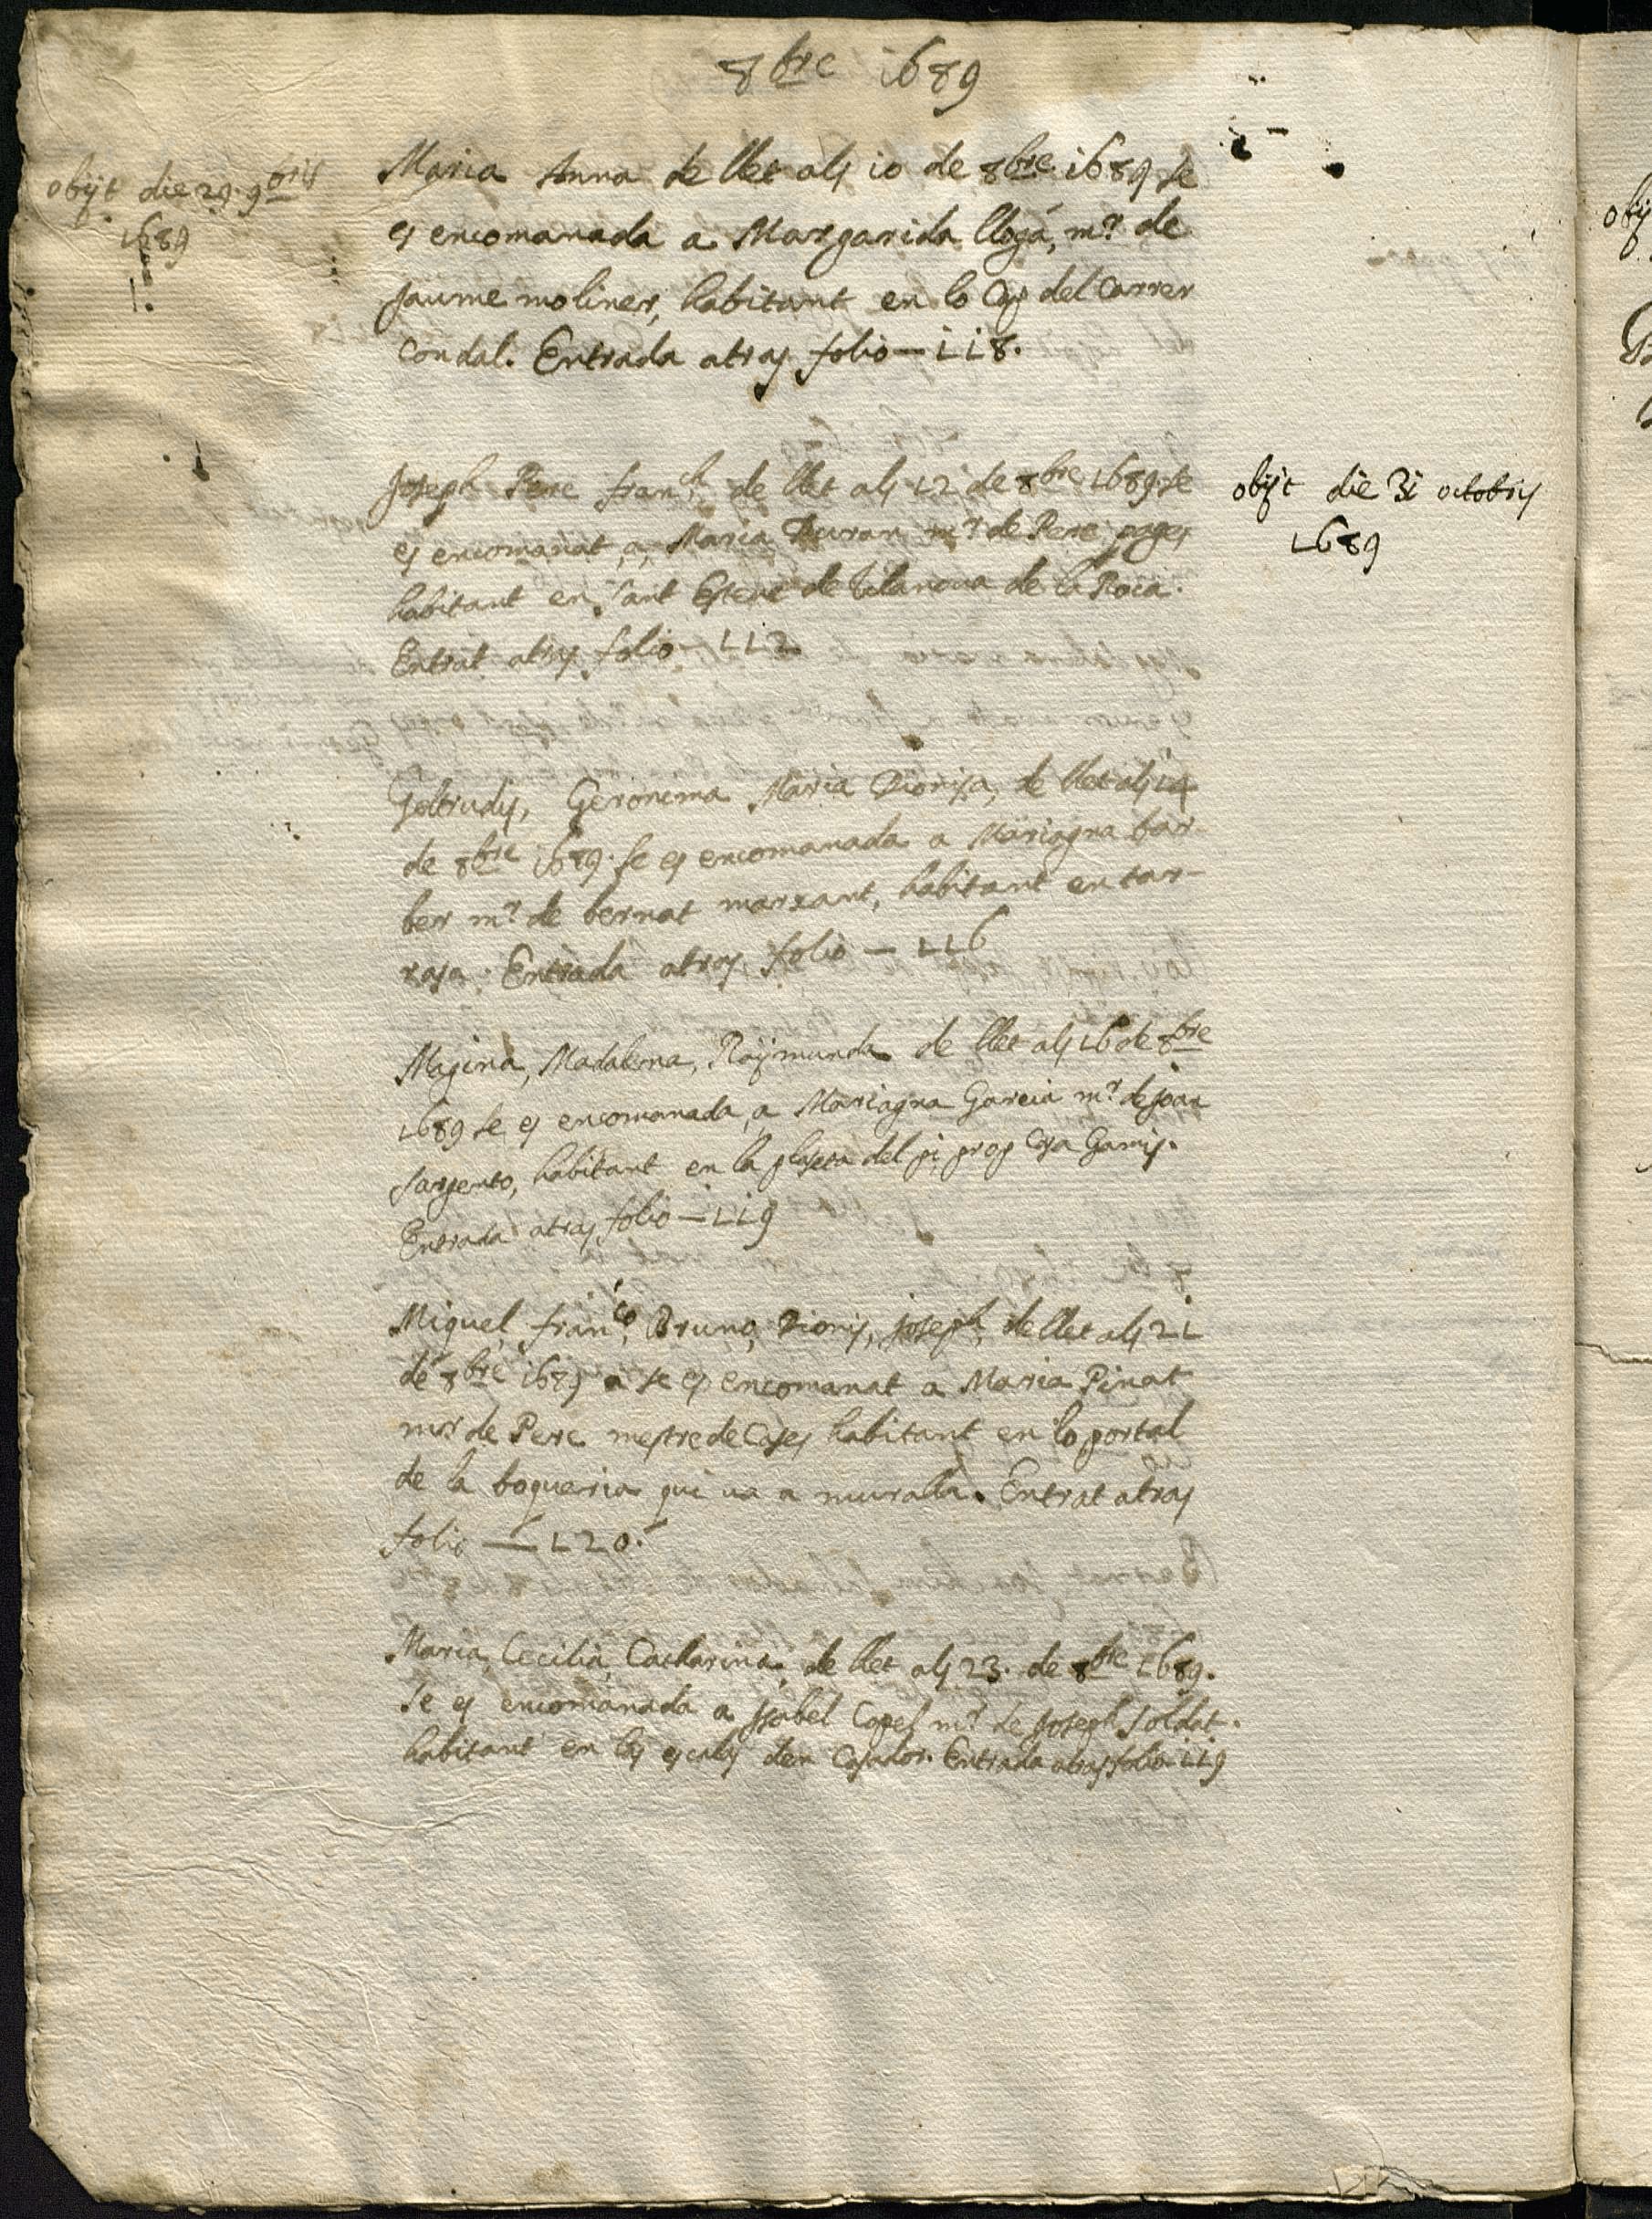 8bre 1689
obijt die 29 9bris
1689
Maria Anna de llet als 10 de 8bre 1689 se
es encomanada a Margarida llogá, mr de
Jaume moliner, habitant en lo Cap del Carrer
Condal. Entrada atras folio — 118.
Joseph Pere franch de llet als 12 de 8bre 1689 se
es encomanat a Maria Duran mr de Pere pages
habitant en Sant Esteve de Vilanova de la Roca.
Entrat atras folio — 112
obijt die 31 octobris
1689
Geltrudis, Geronima Maria Dionisa, de llet als 14
de 8bre 1689. se es encomanada a Mariagna bar-
ber mr de bernat marxant, habitant en tar-
rasa. Entrada atras folio — 116
Magina, Madalena, Raÿmunda de llet als 16 de 8bre
1689 se es encomanada a Mariagna Garcia mr de joan
sargento, habitant en la plaseta del pi prop Casa Gamis.
Entrada atras folio — 119
Miquel franco, Bruno, Dionis, joseph, de llet als 21
de 8bre 1689 a se es encomanat a Maria Pinat
mr de Pere mestre de Cases habitant en lo portal
de la boqueria qui va a muralla. Entrat atras
folio — 120.
Maria, Cecilia, Catharina, de llet als 23. de 8bre 1689.
se es encomanada a Isabel Capel mr de Joseph soldat.
habitant en las escalas den Casador. Entrada atras folio 119